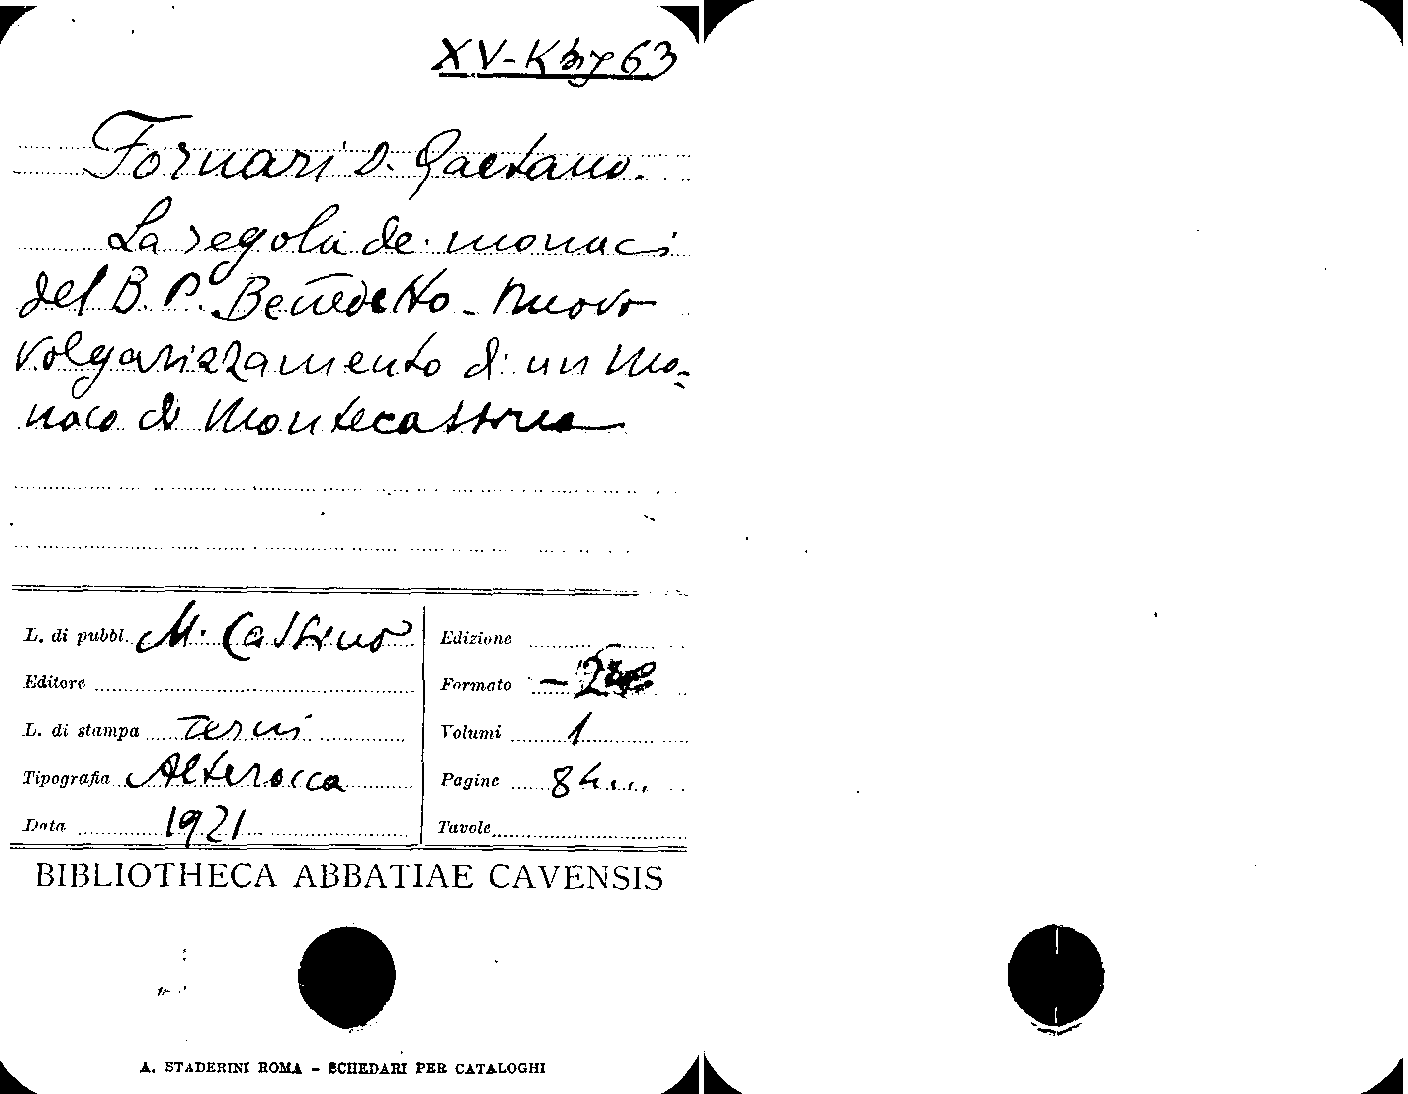 XV-K 63
Fornari D. Gaetano.
La regola de' monaci
del B. P. Benedetto - Nuovo
volgarizzamento di un mo-
naco di Montecassino
L. di pubbl. M. Cassino
Edizione
Editore
Formato
L. di stampa Terni
Volumi 1
Tipografia Alterocca
Pagine 84
Data 1921
Tavole
BIBLIOTHECA ABBATIAE CAVENSIS
A. STADERINI ROMA - SCHEDARI PER CATALOGHI